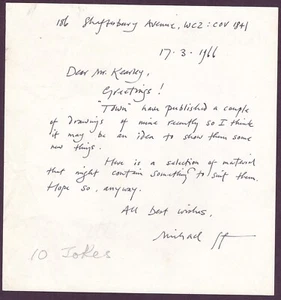 186 Shaftesbury Avenue, WC2: COV 1841
17.3.1966
Dear Mr. Kearley,
Greetings!
"Town" have published a couple
of drawings of mine recently so I think
it may be an idea to show them some
new things.
Here is a selection of material
that might contain something to suit them.
Hope so, anyway.
All best wishes,
Michael
10 Jokes